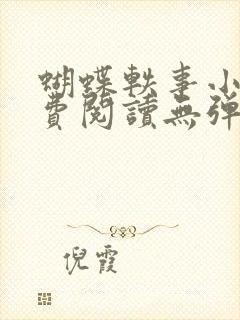 蝴蝶軼事小
費閱讀無彈
倪霞